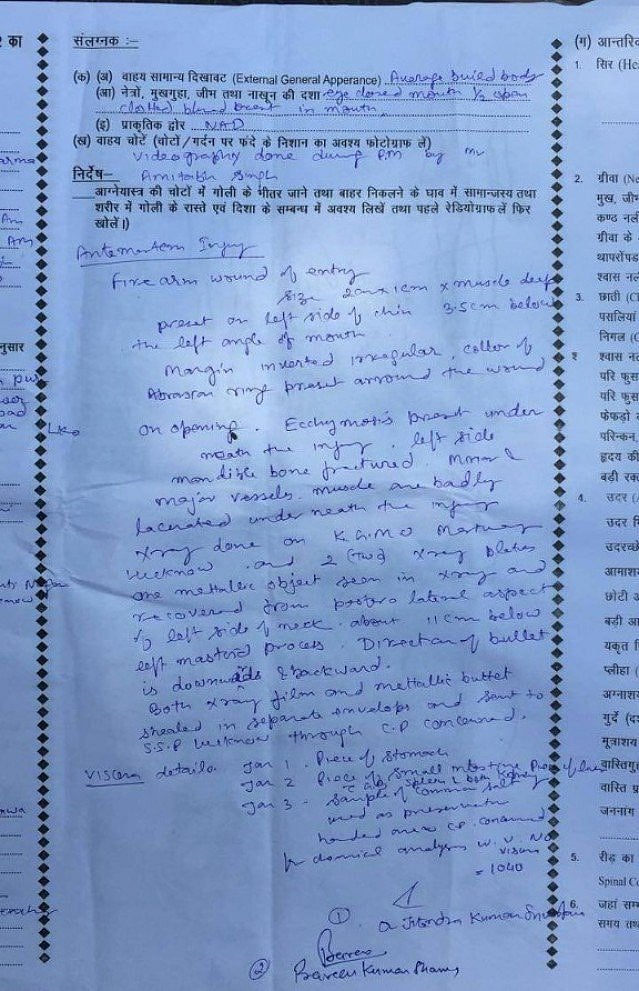 संलग्नक :–
(क) (अ) वाहय सामान्य दिखावट (External General Apperance) Average build body
(आ) नेत्रों, मुखगुहा, जीभ तथा नाखून की दशा eye closed mouth ½ open
clotted blood present in mouth
(इ) प्राकृतिक होर NAD
(ख) वाहय चोटें (चोटों/गर्दन पर फंदे के निशान का अवश्य फोटोग्राफ लें)
Videography done during PM by Mr
निर्देष– Amitabh Singh
आग्नेयास्त्र की चोटों में गोली के भीतर जाने तथा बाहर निकलने के घाव में सामान्जस्य तथा
शरीर में गोली के रास्ते एवं दिशा के सम्बन्ध में अवश्य लिखें तथा पहले रेडियोग्राफ लें फिर
खोलें।)
Antemortem Injury
Fire arm wound of entry
size 2cm x 1cm x muscle deep
present on left side of chin 3.5cm below
the left angle of mouth
Margin inverted irregular, coller of
Abrasion ring present arround the wound
on opening. Ecchymosis present under
neath the injury. left side
mandible bone fractured. Minor &
major vessels. muscle are badly
lacerated under neath the injury
Xray done on K.G.M.U Mortuary
Lucknow and 2 (two) xray plates
one mettalic object seen in xray and
recovered from postero lateral aspect
of left side of neck about 11cm below
left mastoid process. Direction of bullet
is downwards & backward.
Both xray film and mettallic bullet
shealed in separate envelops and sent to
S.S.P Lucknow through C.P concerned.
Viscera details. Jar 1. Piece of stomach
Jar 2 Piece of small intestine Piece of liver
spleen & both kidney
Jar 3 - Sample of common salt
used as preservative
handed over C.P. concerned
for chemical analysis W.V. No
Viscera
= 1040
① Dr Jitendra Kumar
② Praveen Kumar
(ग) आन्तरिक
1. सिर (He
2. ग्रीवा (Ne
मुख, जीभ
कण्ठ नली
ग्रीवा के
श्वास नल
3. छाती (C
पसलियां
श्वास नल
परि फुस
परि फुस
फेफड़ों
हृदय की
बड़ी रक्त
4. उदर (
आमाशय
छोटी
बड़ी आ
यकृत
प्लीहा (
गुर्दे (द
मूत्राशय
जननांग
5. रीढ़ का
Spinal Co
6. समय तथ